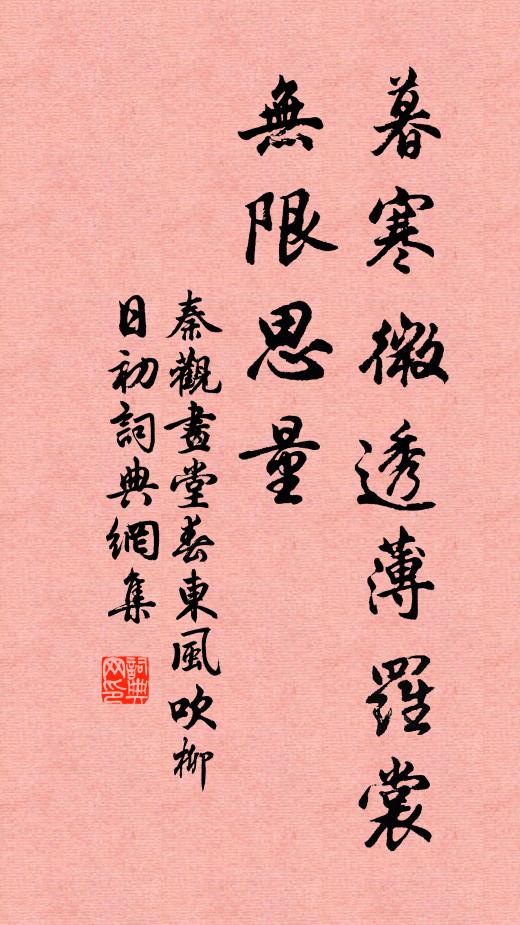 暮寒微透薄羅裳
無限思量
秦觀畫堂春東風吹柳
日初詞典網集
詞典網印